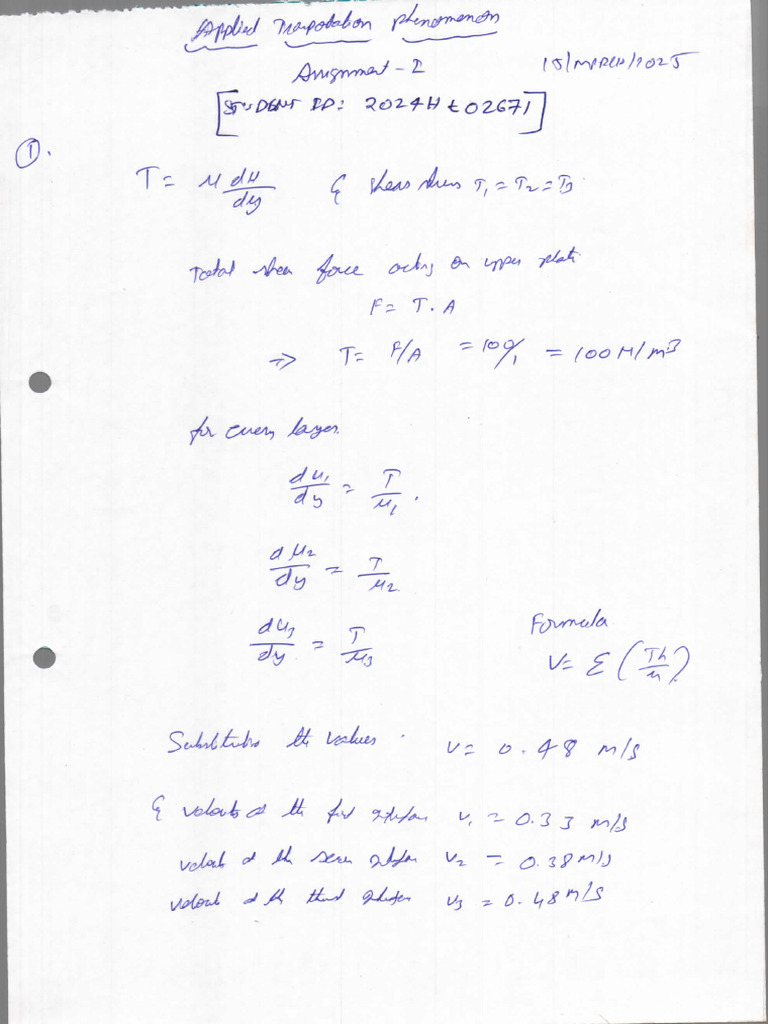 Applied Transportation phenomenon
Assignment - I
15/MARCH/2025
[STUDENT ID: 2024Ht02671]
①.
T = μ du/dy & shear stress T₁ = T₂ = T₃
Total shear force acting on upper plate
F = T . A
=> T = F/A = 100/1 = 100 N/m³
for every layer.
du₁/dy = T/μ₁ .
du₂/dy = T/μ₂
du₃/dy = T/μ₃
Formula
V = Σ (Th/μ)
Substitute the values . V = 0.48 m/s
& velocity of the first V₁ = 0.33 m/s
velocity of the V₂ = 0.38 m/s
velocity of the third V₃ = 0.48 m/s